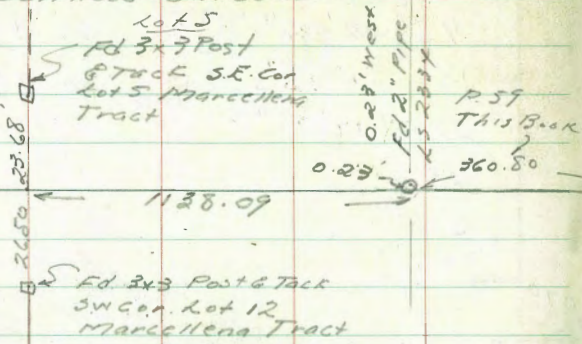 Lot 5
Fd 3x3 Post
& Tack S.E. Cor
Lot 5 Marcellena
Tract
23.68'
0.23' West
Fd 2" Pipe
LS 2334
P. 59
This Book
0.23'
360.80
1138.09
26.50
Fd. 3x3 Post & Tack
SW Cor. Lot 12
Marcellena Tract